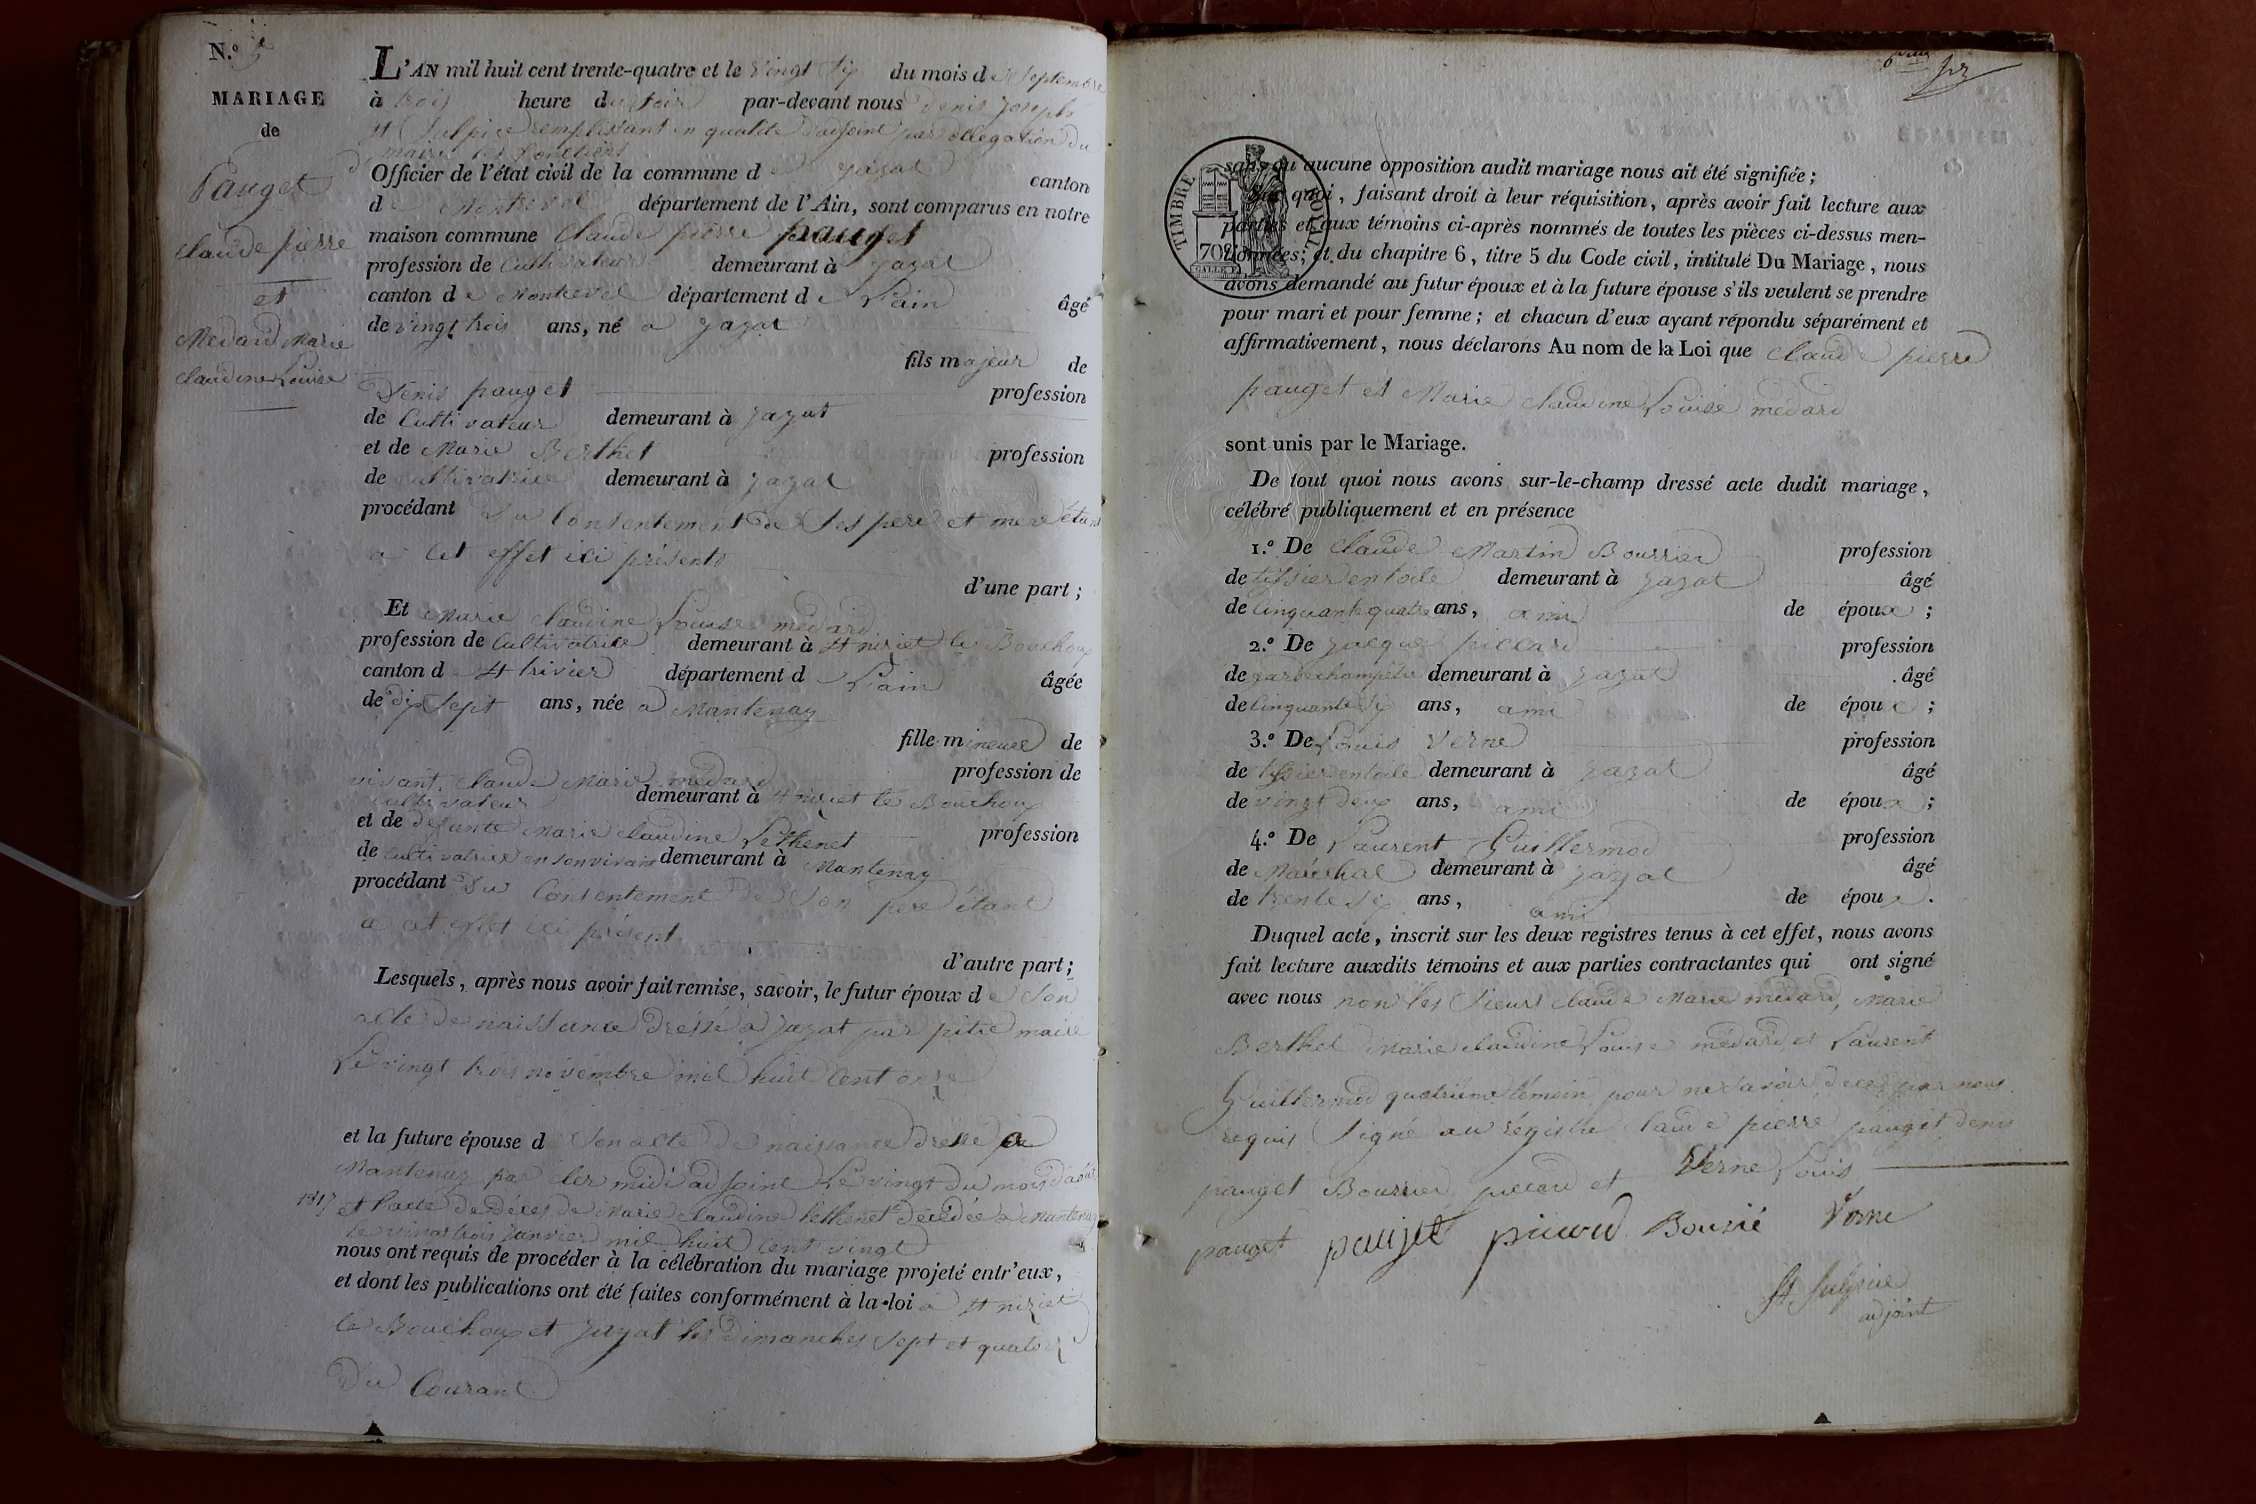 N.º 5
MARIAGE
de
Pauget
claude pierre
et
Médard Marie
claudine Louise
L'AN mil huit cent trente-quatre et le vingt six du mois de Septembre
à trois heure du soir par-devant nous denis joseph
St Sulpice remplissant en qualité d'adjoint par délégation du
maire les fonctions d'
Officier de l'état civil de la commune de jayat canton
de Montrevel département de l'Ain, sont comparus en notre
maison commune Claude pierre pauget
profession de Cultivateur demeurant à jayat
canton de Montrevel département de L'ain âgé
de vingt trois ans, né a jayat
fils majeur de
Denis pauget profession
de Cultivateur demeurant à jayat
et de Marie Berthet profession
de cultivatrice demeurant à jayat
procédant du Consentement de Ses pere et mere étant
a cet effet ici présents
d'une part ;
Et Marie claudine Louise médard
profession de Cultivatrice demeurant à St niziet le Bouchoux
canton de St trivier département de L'ain âgée
de dix sept ans, née a Mantenay
fille mineure de
vivant claude Marie médard profession de
cultivateur demeurant à St niziet le Bouchoux
et de défunte Marie claudine Péthenet profession
de cultivatrice en son vivant demeurant à Mantenay
procédant du Consentement de Son pere étant
a cet effet ici présent
d'autre part ;
Lesquels, après nous avoir fait remise, savoir, le futur époux de Son
acte de naissance dressé a jayat par pitre maire
Le vingt trois novembre mil huit cent onze
et la future épouse de Son acte de naissance dressé a
Mantenay par adjoint Le vingt du mois d'août
1817 et l'acte de décès de Marie claudine Péthenet décédée a Mantenay
le vingt trois janvier mil huit cent vingt
nous ont requis de procéder à la célébration du mariage projeté entr'eux,
et dont les publications ont été faites conformément à la loi a St niziet
le Bouchoux et jayat les dimanches sept et quatorze
Du Courant
sans qu'aucune opposition audit mariage nous ait été signifiée ;
Sur quoi, faisant droit à leur réquisition, après avoir fait lecture aux
parties et aux témoins ci-après nommés de toutes les pièces ci-dessus men-
tionnées, et du chapitre 6, titre 5 du Code civil, intitulé Du Mariage, nous
avons demandé au futur époux et à la future épouse s'ils veulent se prendre
pour mari et pour femme ; et chacun d'eux ayant répondu séparément et
affirmativement, nous déclarons Au nom de la Loi que claude pierre
pauget et Marie claudine Louise médard
sont unis par le Mariage.
De tout quoi nous avons sur-le-champ dressé acte dudit mariage,
célébré publiquement et en présence
1.º De claude Martin Bourrier profession
de tissier en toile demeurant à jayat âgé
de cinquante quatre ans, ami de époux ;
2.º De jacque piccard profession
de garde champêtre demeurant à jayat âgé
de cinquante six ans, ami de époux ;
3.º De Louis Verne profession
de tissier en toile demeurant à jayat âgé
de vingt deux ans, ami de époux ;
4.º De Laurent Guillermod profession
de Maréchal demeurant à jayat âgé
de trente six ans, ami de époux.
Duquel acte, inscrit sur les deux registres tenus à cet effet, nous avons
fait lecture auxdits témoins et aux parties contractantes qui ont signé
avec nous non les sieurs claude Marie médard, Marie
Berthet Marie claudine Louise médard et Laurent
Guillermod quatrième témoin pour ne savoir de ce par nous
requis Signé au régistre claude pierre pauget denis
pauget Bourrier piccard et Verne Louis
pauget paujet picard Bourié Verne
St Sulpice
adjoint
TIMBRE ROYAL
70c
GALLE F.